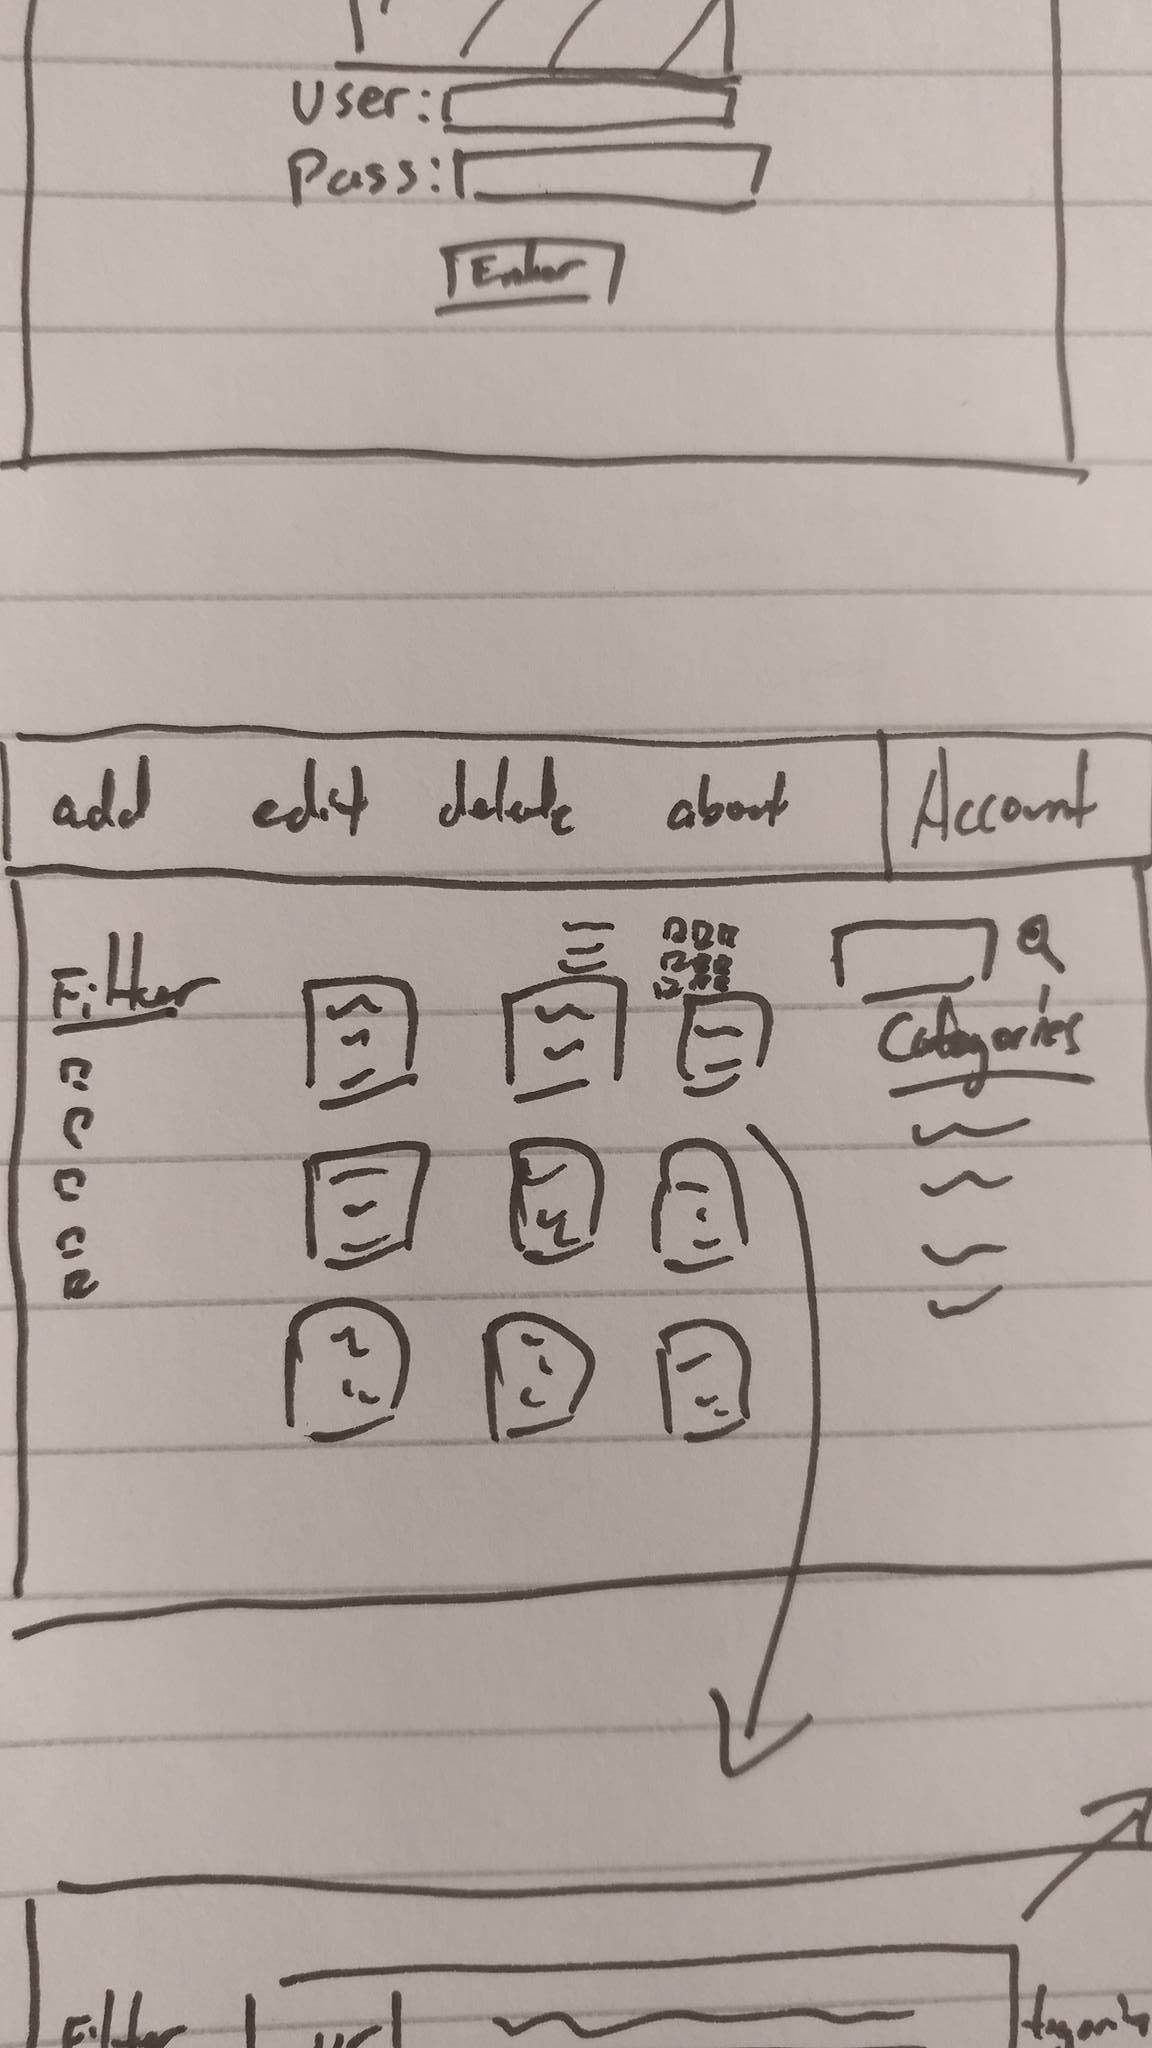 User:
Pass:
Enter
add edit delete about Account
Filter
Categories
Filter url